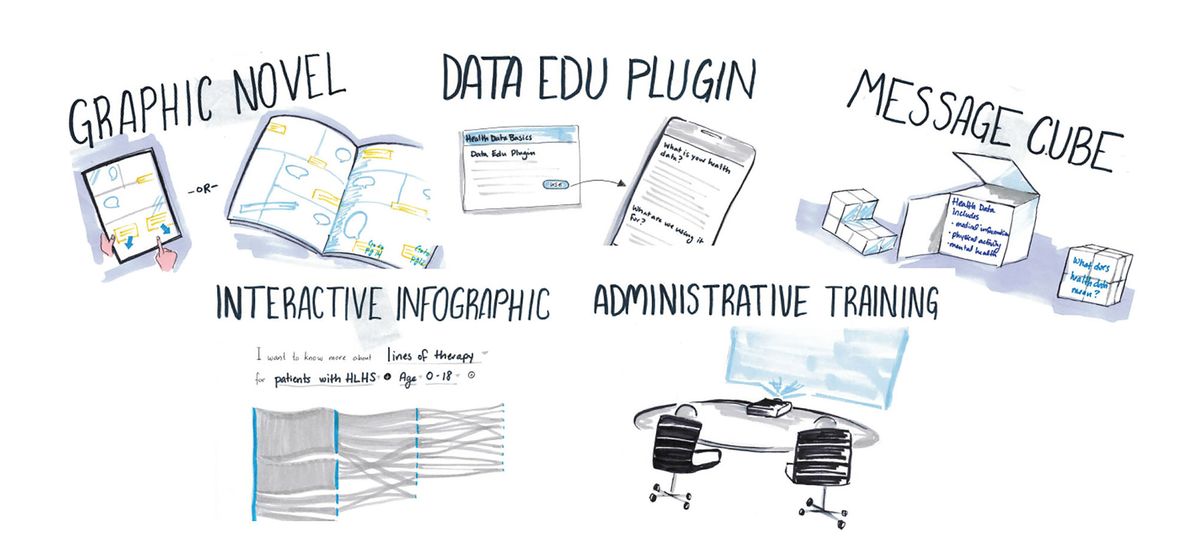 GRAPHIC NOVEL
-OR-
DATA EDU PLUGIN
Health Data Basics
Data Edu Plugin
USE
What is your health
data?
What are we using it
for?
MESSAGE CUBE
Health Data
Includes
• medical information
• physical activity
• mental health
What does
health data
mean?
INTERACTIVE INFOGRAPHIC
I want to know more about lines of therapy
for patients with HLHS Age 0-18
ADMINISTRATIVE TRAINING